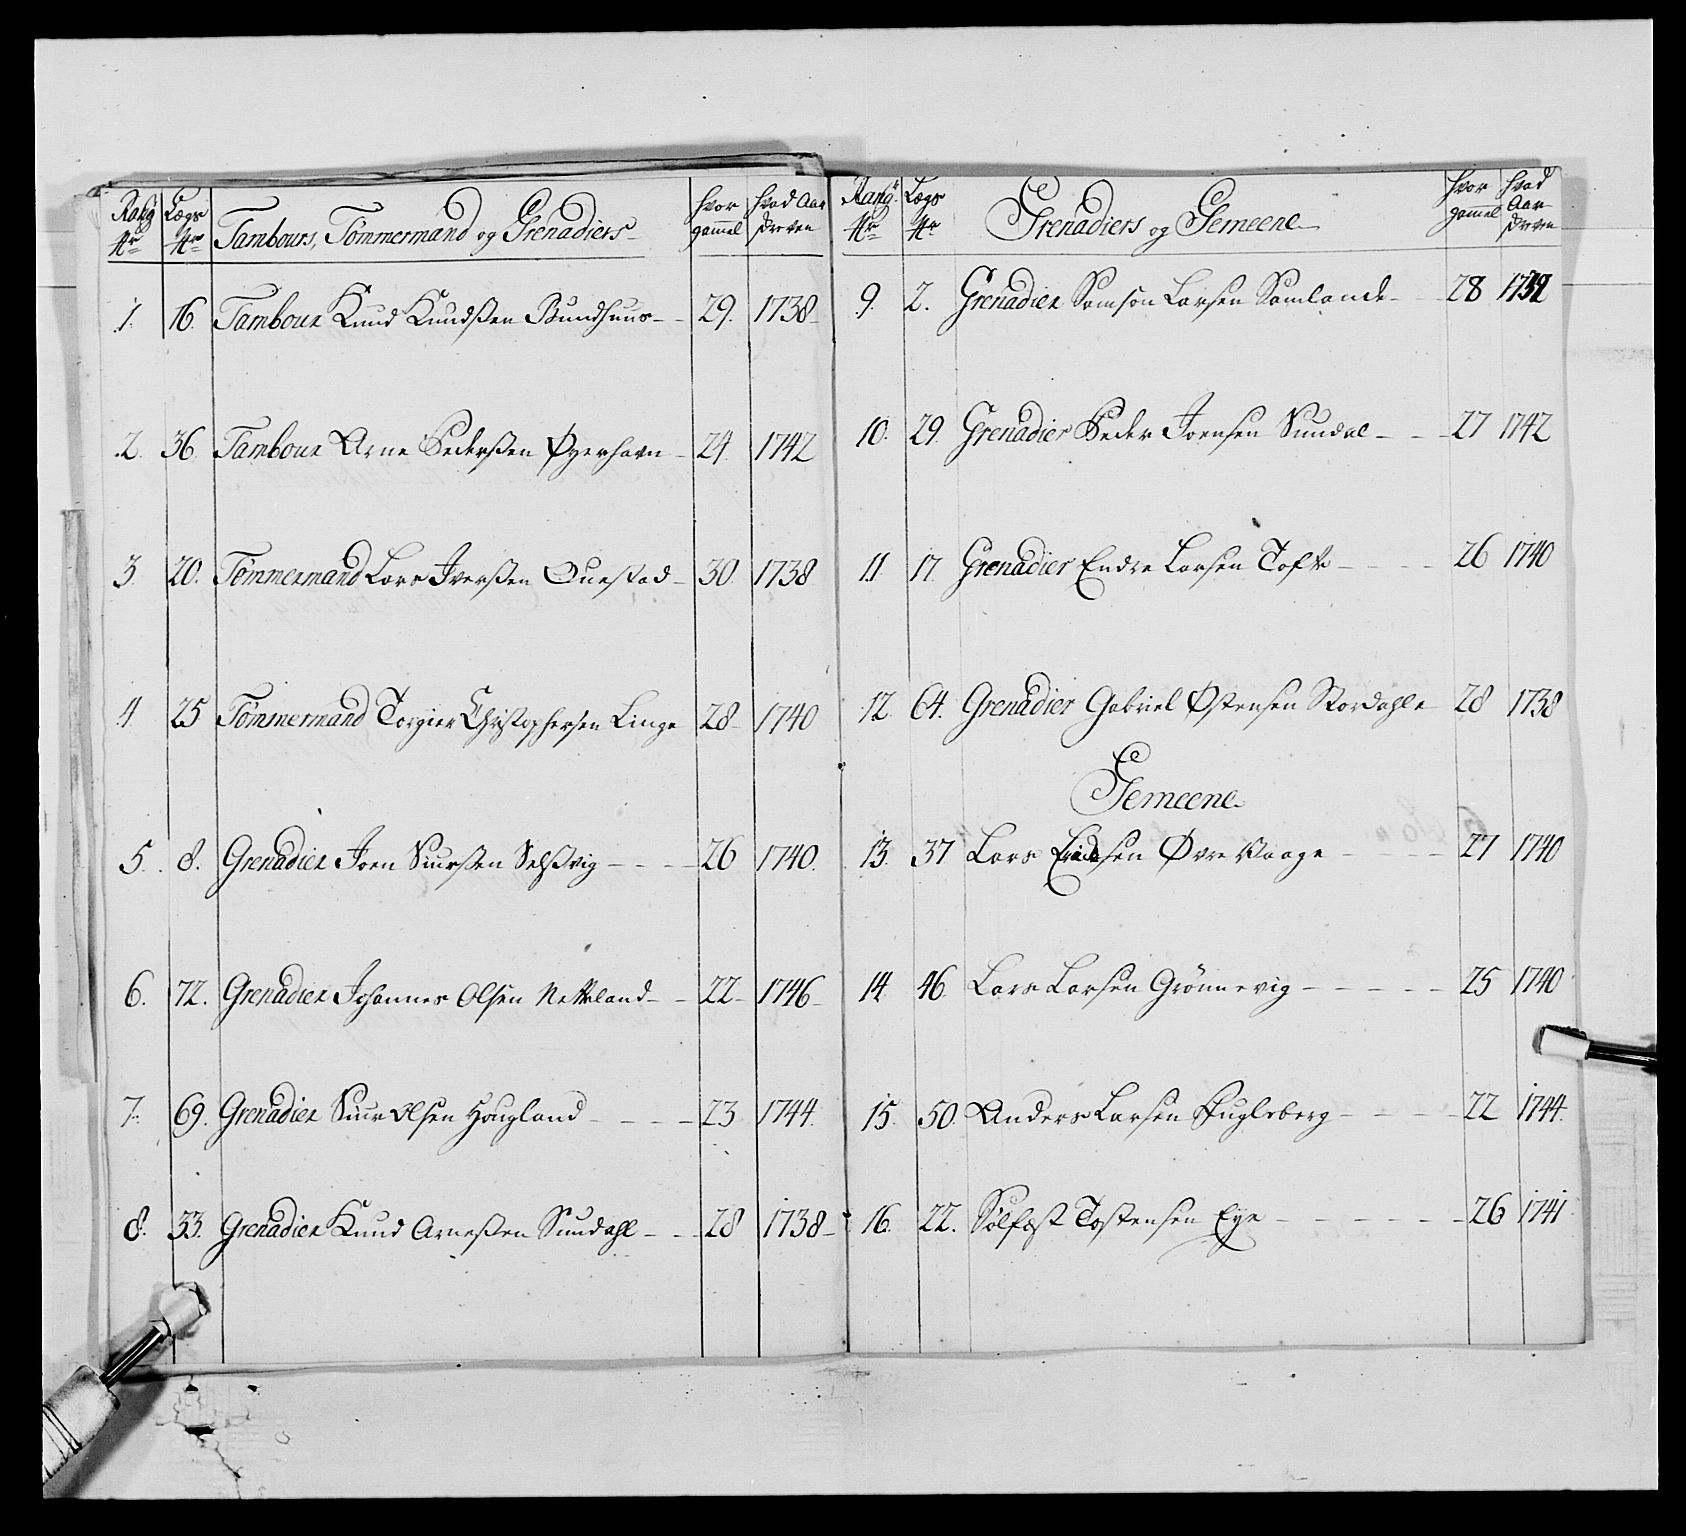 Rang Nr Lægs Nr Tambours, Tömmermand og Grenadiers hvor gammel hvad Aar skreven
1. 16. Tambour Knud Knudßen Bundhuus 29. 1738
2. 36. Tambour Arne Pederßen Øyerhavn 24 1742
3 20. Tömmermand Lars Iverßen Questad 30 1738
4 25 Tömmermand Torgier Christophersen Linge 28 1740
5. 8. Grenadier Joen Siurßen Selßvig 26 1740.
6. 72. Grenadier Johannes Olsen Netteland 22 1746
7. 69. Grenadier Siur Olsen Hougland 23 1744.
8. 33. Grenadier Knud Arneßen Sundahl 28 1738
Rang Nr Lægs Nr Grenadiers og Gemeene hvor gammel hvad Aar skreven
9. 2. Grenadier Samson Larsen Samlande 28
10. 29. Grenadier Peder Joensen Sundal 27 1742
11. 17. Grenadier Endre Larsen Tofte 26 1740
12. 64. Grenadier Gabriel Østensen Stordahle 28 1738
Gemeene
13. 37 Lars Øvre Vaage 27 1740
14. 46. Lars Larsen Grönnevig 25 1740
15. 50. Anders Larsen Fugleberg 22 1744.
16. 22. Sölfæst Tostensen Eye 26 1741